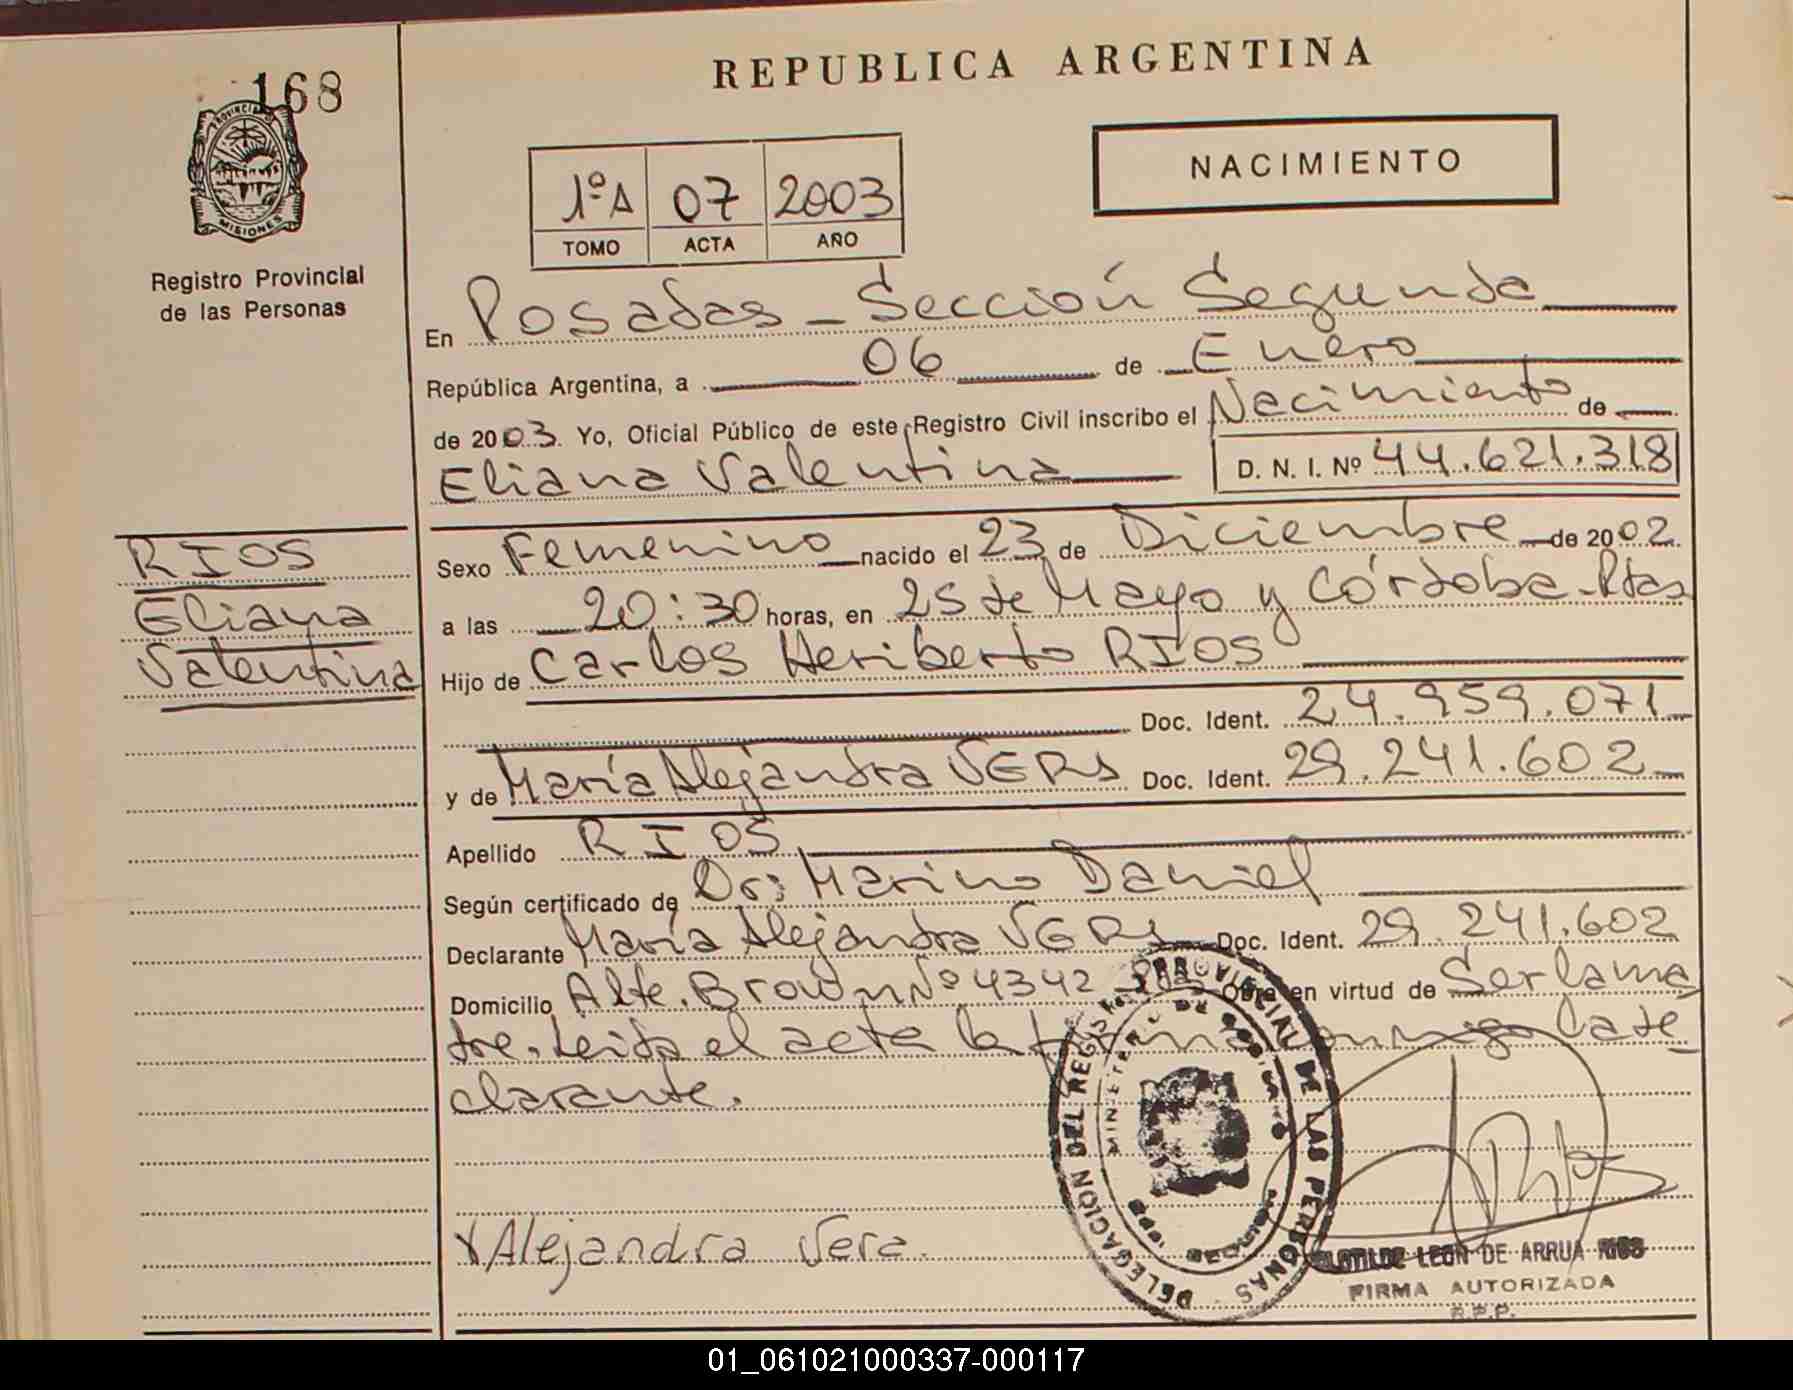 168
PROVINCIA DE
MISIONES
Registro Provincial
de las Personas
REPUBLICA ARGENTINA
1ºA 07 2003
TOMO ACTA AÑO
NACIMIENTO
En Posadas - Sección Segunda
República Argentina, a 06 de Enero
de 2003. Yo, Oficial Público de este Registro Civil inscribo el Nacimiento de
Eliana Valentina D. N. I. Nº 44.621.318
RIOS
Eliana
Valentina
Sexo Femenino nacido el 23 de Diciembre de 2002.
a las 20:30 horas, en 25 de Mayo y Córdoba-Pdas
Hijo de Carlos Heriberto RIOS
Doc. Ident. 24.959.071
y de María Alejandra VERA Doc. Ident. 29.241.602
Apellido RIOS
Según certificado de Dr: Marino Daniel
Declarante María Alejandra VERA Doc. Ident. 29.241.602
Domicilio Alte. Brown Nº 4342 Obra en virtud de Ser la ma
dre. Leida el acta la firma conmigo la de_
clarante.
DELEGACION DEL REGISTRO PROVINCIAL DE LAS PERSONAS
X Alejandra Vera.
CLOTILDE LEON DE ARRUA RIOS
FIRMA AUTORIZADA
R.P.P.
01_061021000337-000117